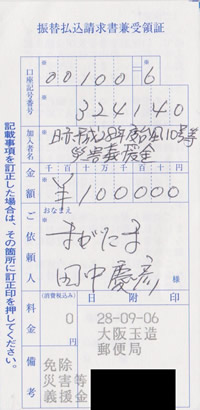 振替払込請求書兼受領証
口座記号番号
00100=6
324140
加入者名
日赤平成28年度台風10号等
災害義援金
金額
千百十万千百十円
¥100000
ご依頼人
おなまえ
まがたま
田中慶彦
様
料金
(消費税込み)
0
円
日附印
28-09-06
大阪玉造
郵便局
備考
免除
災害等
義援金
記載事項を訂正した場合は、その箇所に訂正印を押してください。